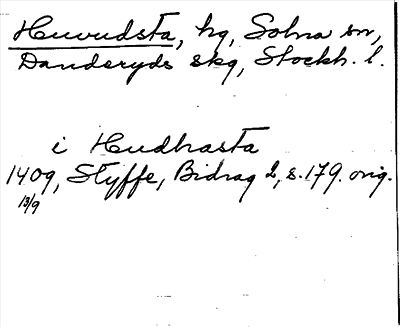 Huvudsta, hg, Solna sn,
Danderyds skg, Stockh. l.
i Hudhasta
1409, Styffe, Bidrag 2, s. 179. orig.
13/9